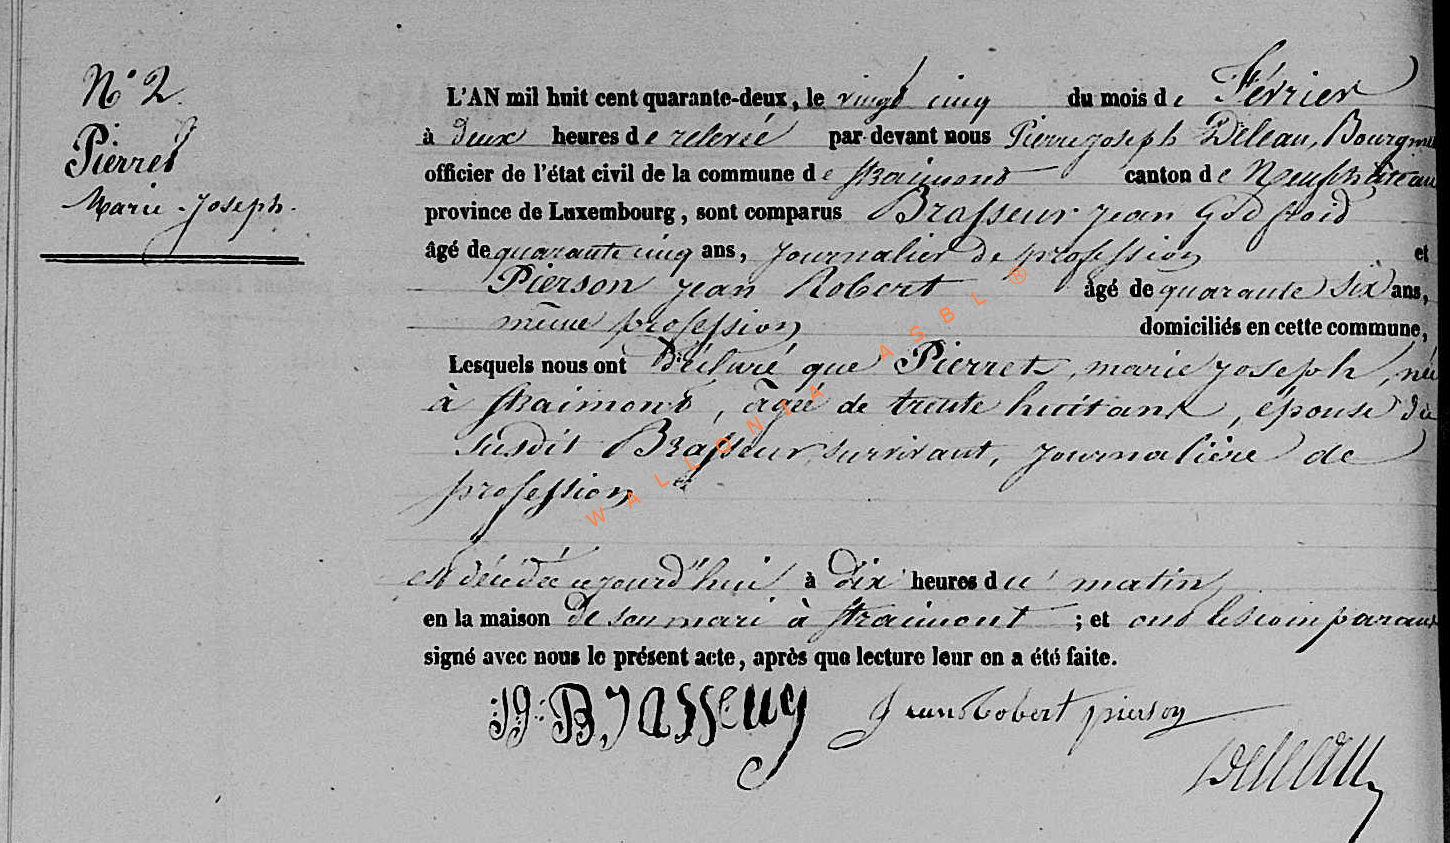 N° 2.
Pierret
Marie-Joseph.
L'AN mil huit cent quarante-deux, le vingt cinq du mois de Février
à deux heures de relevée par-devant nous Pierre joseph Deleau, Bourgme
officier de l'état civil de la commune de straimont canton de Neufchâteau
province de Luxembourg, sont comparus Brasseur jean Godfroid
âgé de quarante cinq ans, journalier de profession et
Pierson jean Robert âgé de quarante six ans,
même profession domiciliés en cette commune,
Lesquels nous ont déclaré que Pierret, marie joseph, née
à straimont, âgée de trente huit ans, épouse du
susdit Brasseur survivant, journalière de
profession
est décédée aujourd'hui à dix heures du matin
en la maison de son mari à straimont ; et ont les comparants
signé avec nous le présent acte, après que lecture leur en a été faite.
JG: Brasseur Jean Robert pierson
Deleau
WALLONIA ASBL ®